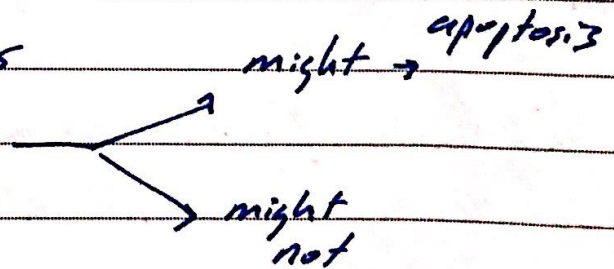 might → apoptosis
might
not